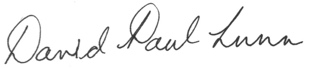 David Paul Lunn